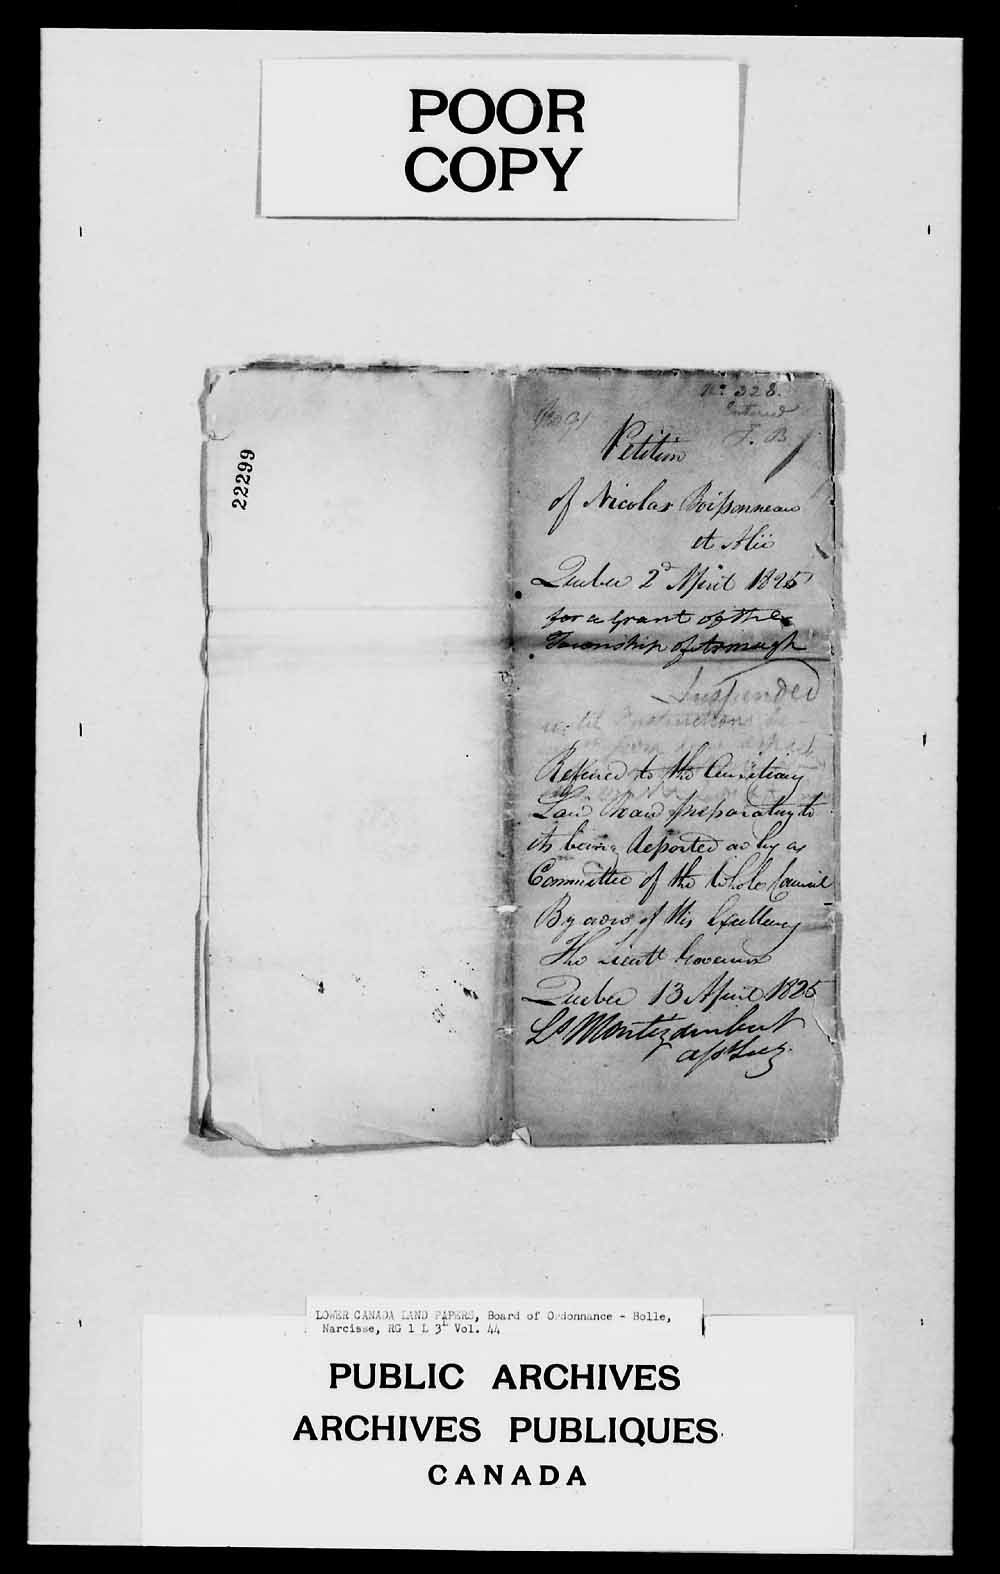 POOR
COPY
22299
No. 328.
Entered
J. B.
No 91
Petition
of Nicolas Boissonneau
et Alii
Quebec 2d April 1825
for a Grant of the
Township of Armagh
Suspended
until Instructions be
from
Referred to the Auxiliary
Land Board preparatory to
its being Reported on by a
Committee of the Whole Council
By order of His Excellency
The Lieutt Governor
Quebec 13 April 1825
Ls Montizambert
asst Secy.
LOWER CANADA LAND PAPERS, Board of Ordonnance - Bolle,
Narcisse, RG 1 L 3L Vol. 44
PUBLIC ARCHIVES
ARCHIVES PUBLIQUES
CANADA